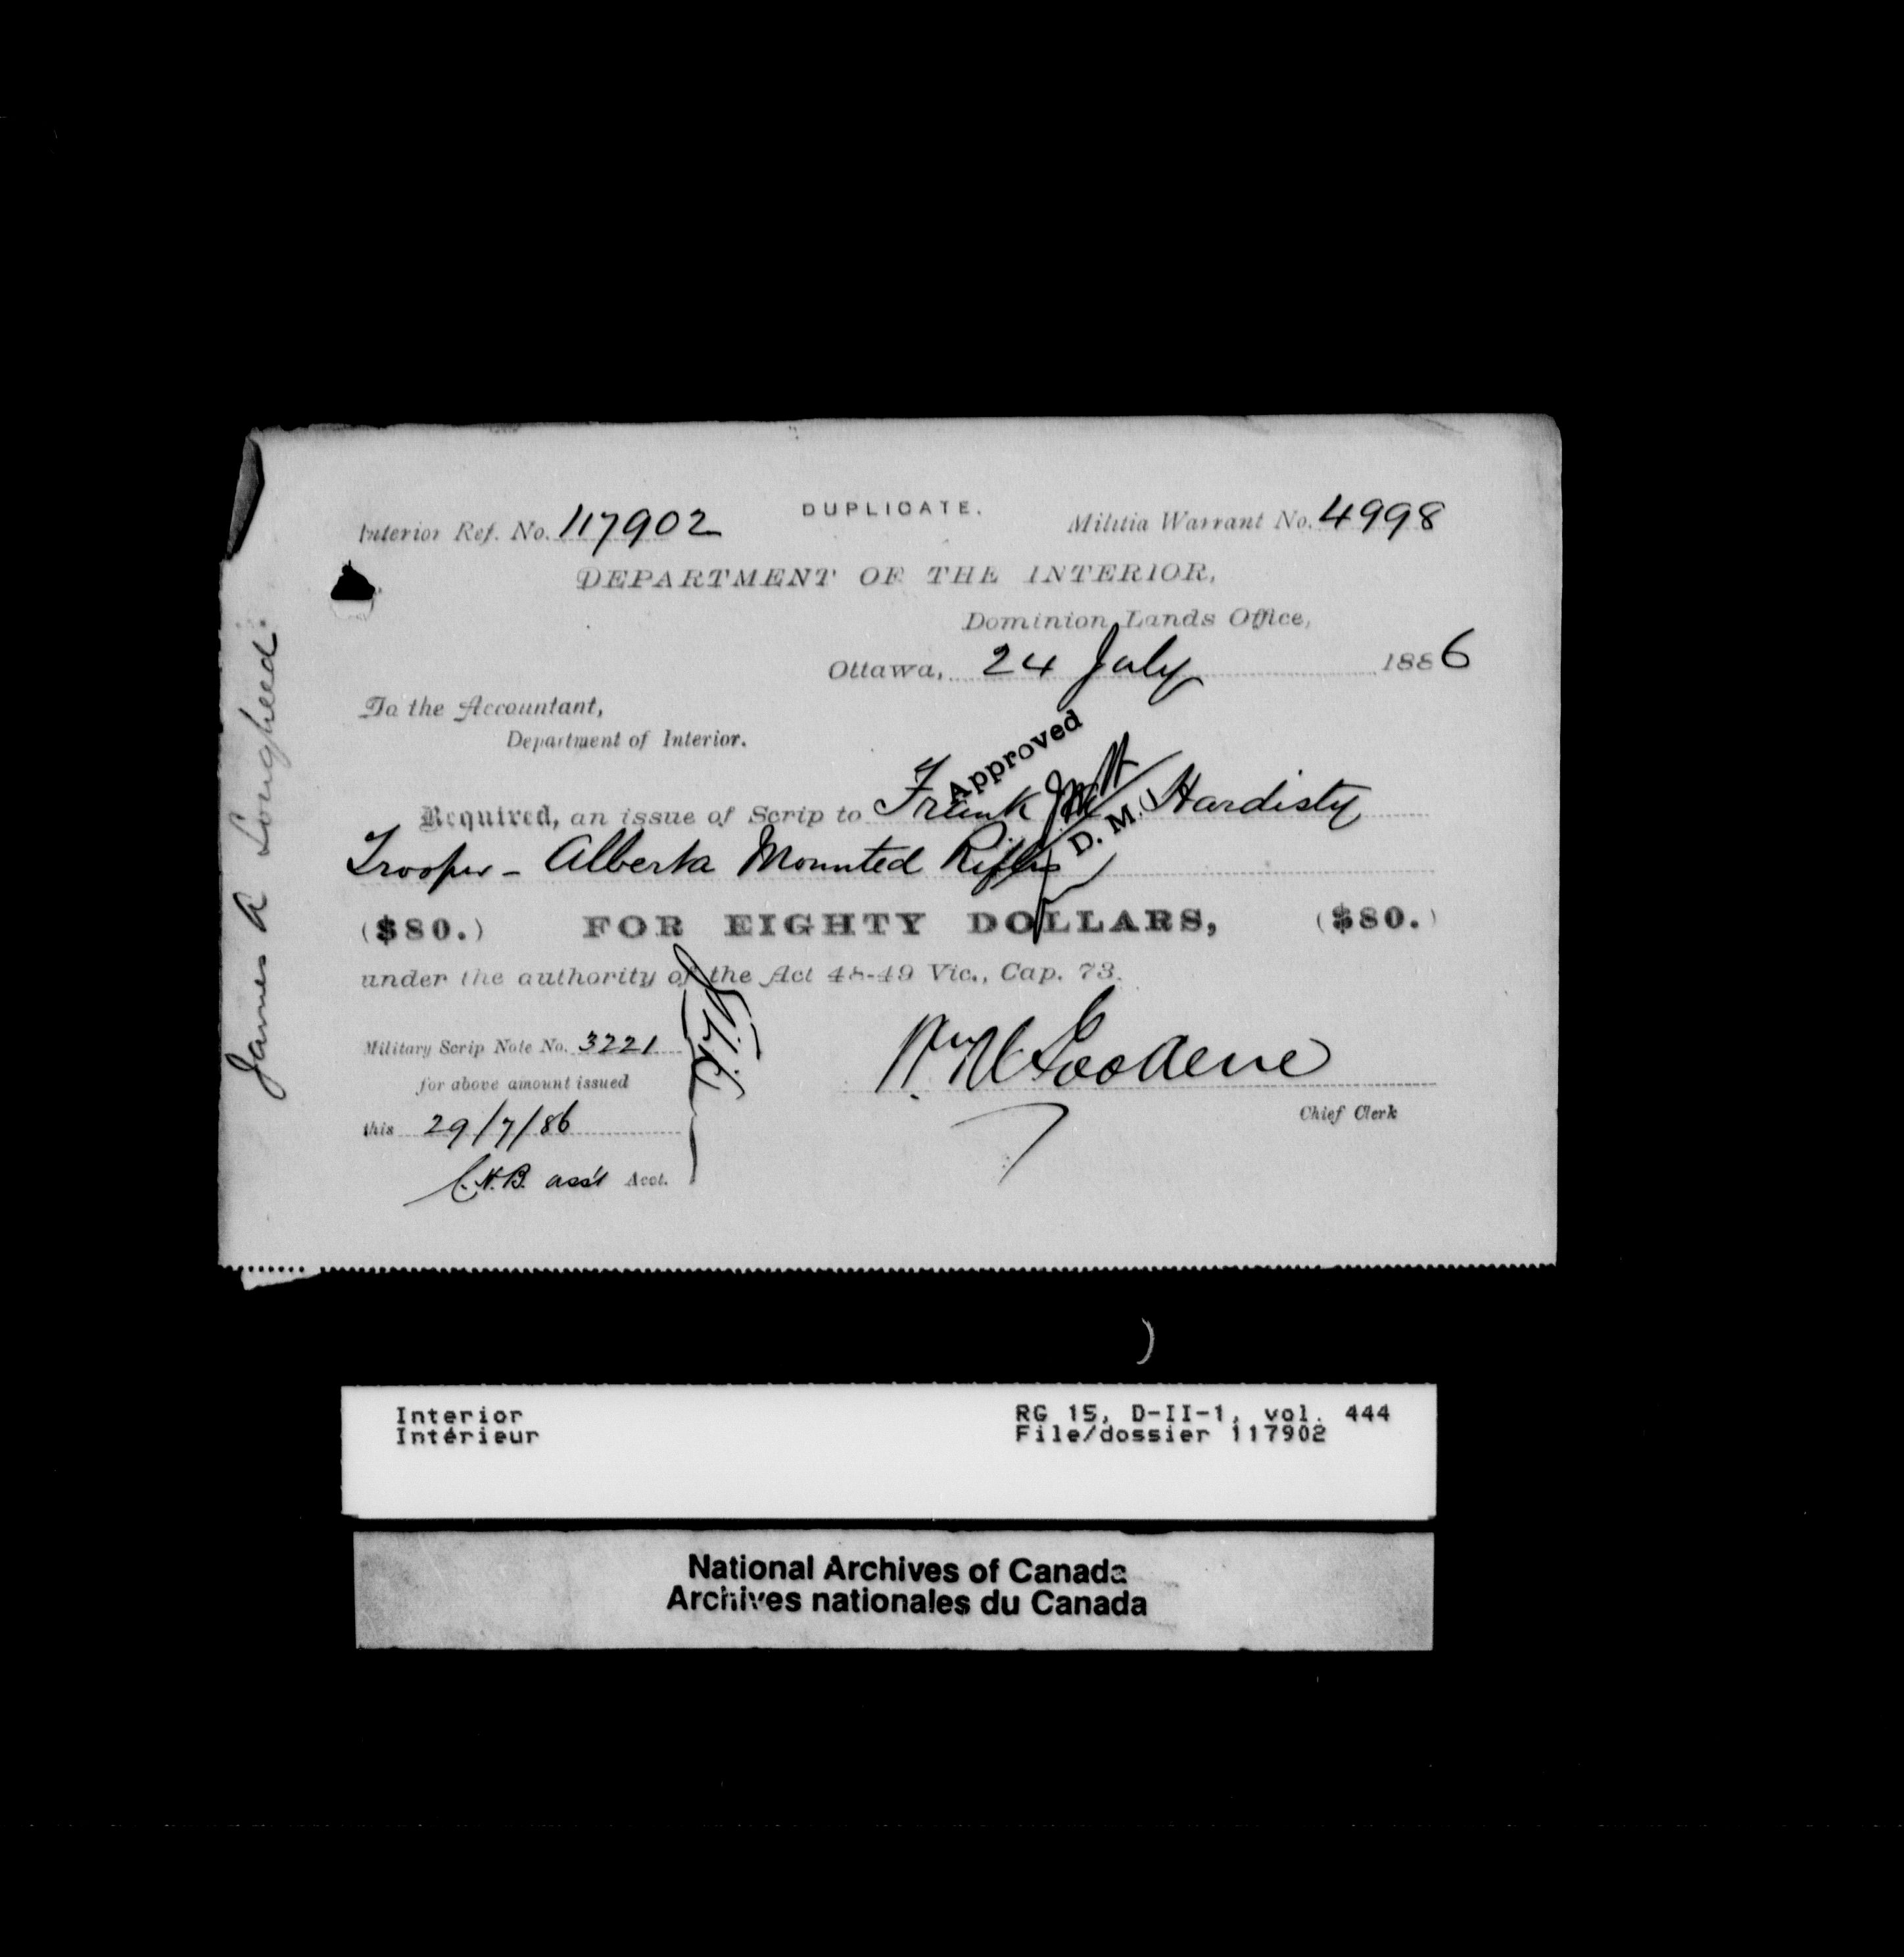 DUPLICATE.
Interior Ref. No. 117902 Militia Warrant No. 4998
DEPARTMENT OF THE INTERIOR,
Dominion Lands Office,
Ottawa, 24 July 1886
To the Accountant,
Department of Interior.
Approved
Required, an issue of Scrip to Frank Hardisty
D. M. I.
Trooper - Alberta Mounted Rifles
($80.) FOR EIGHTY DOLLARS, ($80.)
under the authority of the Act 48-49 Vic., Cap. 73.
Military Scrip Note No. 3221
for above amount issued
this 29/7/86
C.N.B. ass't Acct.
Chief Clerk
James A Lougheed
Interior
Intérieur
RG 15, D-II-1, vol. 444
File/dossier 117902
National Archives of Canada
Archives nationales du Canada